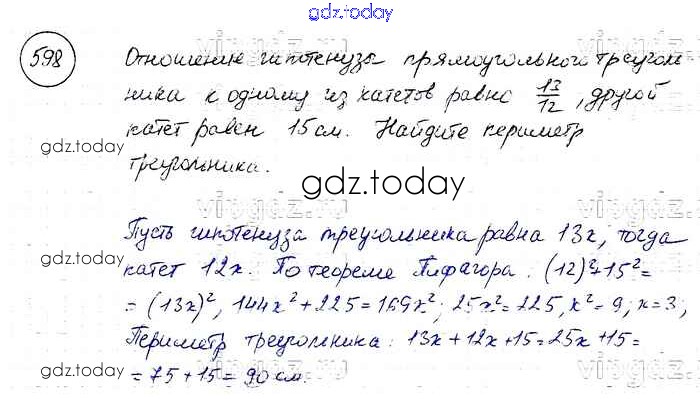 gdz.today
598
Отношение гипотенузы прямоугольного треуголь
ника к одному из катетов равно 13/12, другой
катет равен 15 см. Найдите периметр
gdz.today
треугольника.
gdz.today
Пусть гипотенуза треугольника равна 13x, тогда
gdz.today
катет 12x. По теореме Пифагора: (12)²+15²=
= (13x)², 144x²+225=169x²; 25x²=225, x²=9; x=3;
Периметр треугольника: 13x+12x+15=25x+15=
gdz.today
=75+15=90 см.